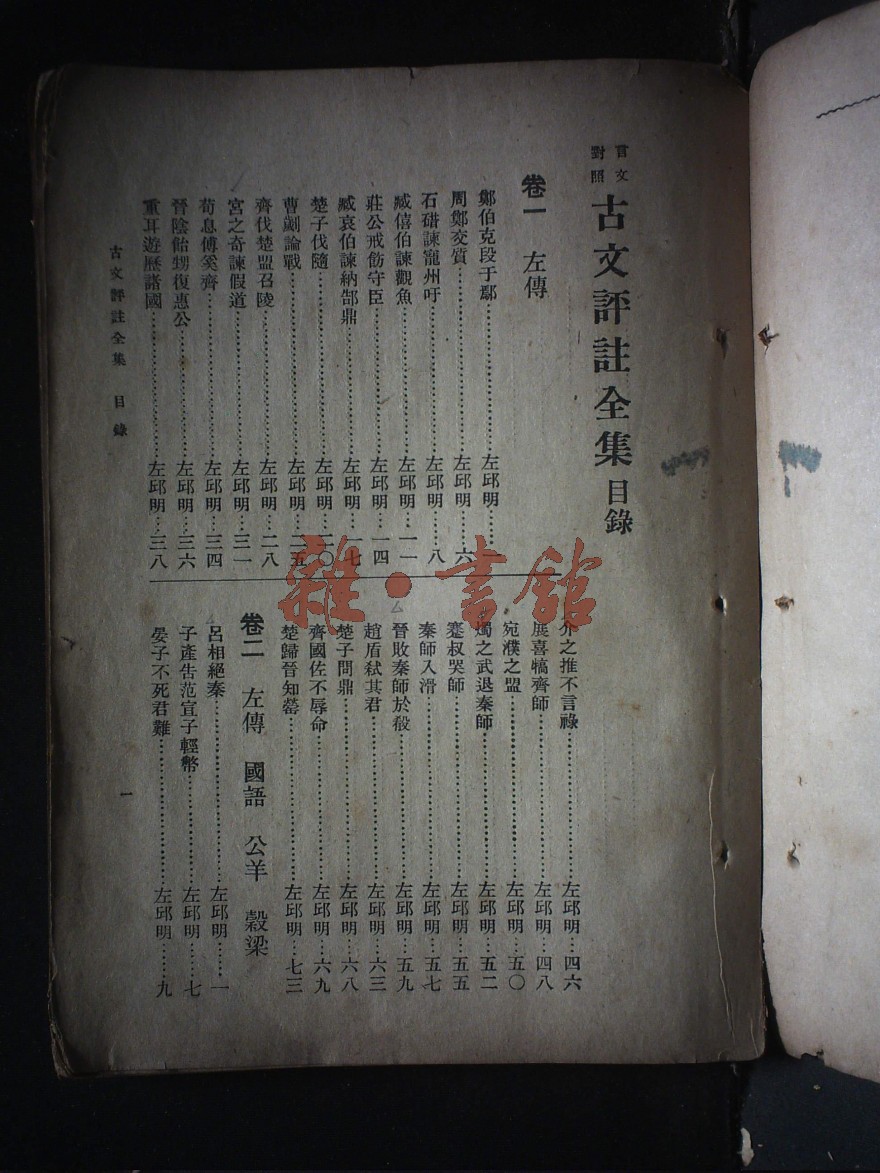 言文對照 古文評註全集目錄
卷一 左傳
鄭伯克段于鄢……左邱明……一
周鄭交質……左邱明……六
石碏諫寵州吁……左邱明……八
臧僖伯諫觀魚……左邱明…一一
莊公戒飭守臣……左邱明…一四
臧哀伯諫納郜鼎……左邱明…一七
楚子伐隨……左邱明…二〇
曹劌論戰……左邱明…二五
齊伐楚盟召陵……左邱明…二八
宮之奇諫假道……左邱明…三一
荀息傅奚齊……左邱明…三四
晉陰飴甥復惠公……左邱明…三六
重耳遊歷諸國……左邱明…三八
介之推不言祿……左邱明…四六
展喜犒齊師……左邱明…四八
宛濮之盟……左邱明…五〇
燭之武退秦師……左邱明…五二
蹇叔哭師……左邱明…五五
秦師入滑……左邱明…五七
晉敗秦師於殽……左邱明…五九
趙盾弒其君……左邱明…六三
楚子問鼎……左邱明…六八
齊國佐不辱命……左邱明…六九
楚歸晉知罃……左邱明…七三
卷二 左傳 國語 公羊 穀梁
呂相絕秦……左邱明……一
子產告范宣子輕幣……左邱明……七
晏子不死君難……左邱明……九
古文評註全集 目錄
一
雜·書館